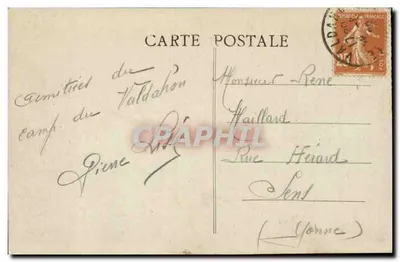 CARTE POSTALE
Amitiés du
camp du Valdahon
Pierre
Monsieur René
Maillard
Rue Hérard
Sens
(Yonne)
CPAPHIL